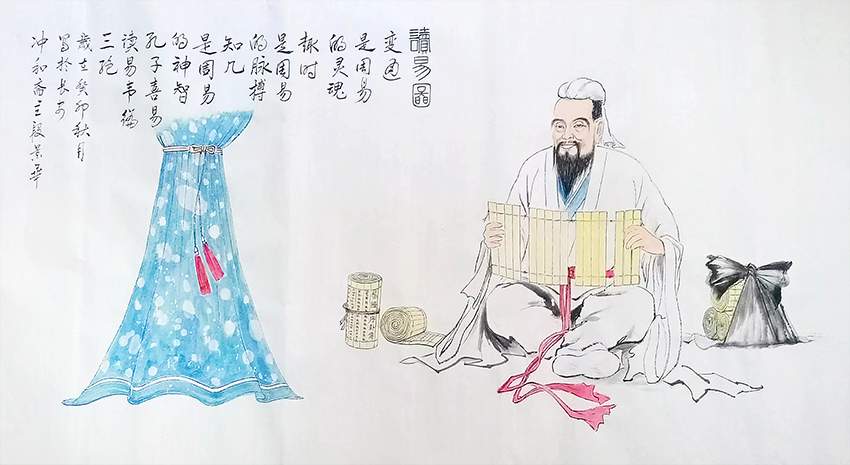 讀易圖
变通
是周易
的灵魂
趣时
是周易
的脉搏
知几
是周易
的神智
孔子喜易
读易韦编
三绝
歲在癸卯秋月
写於长安
冲和斋主景華